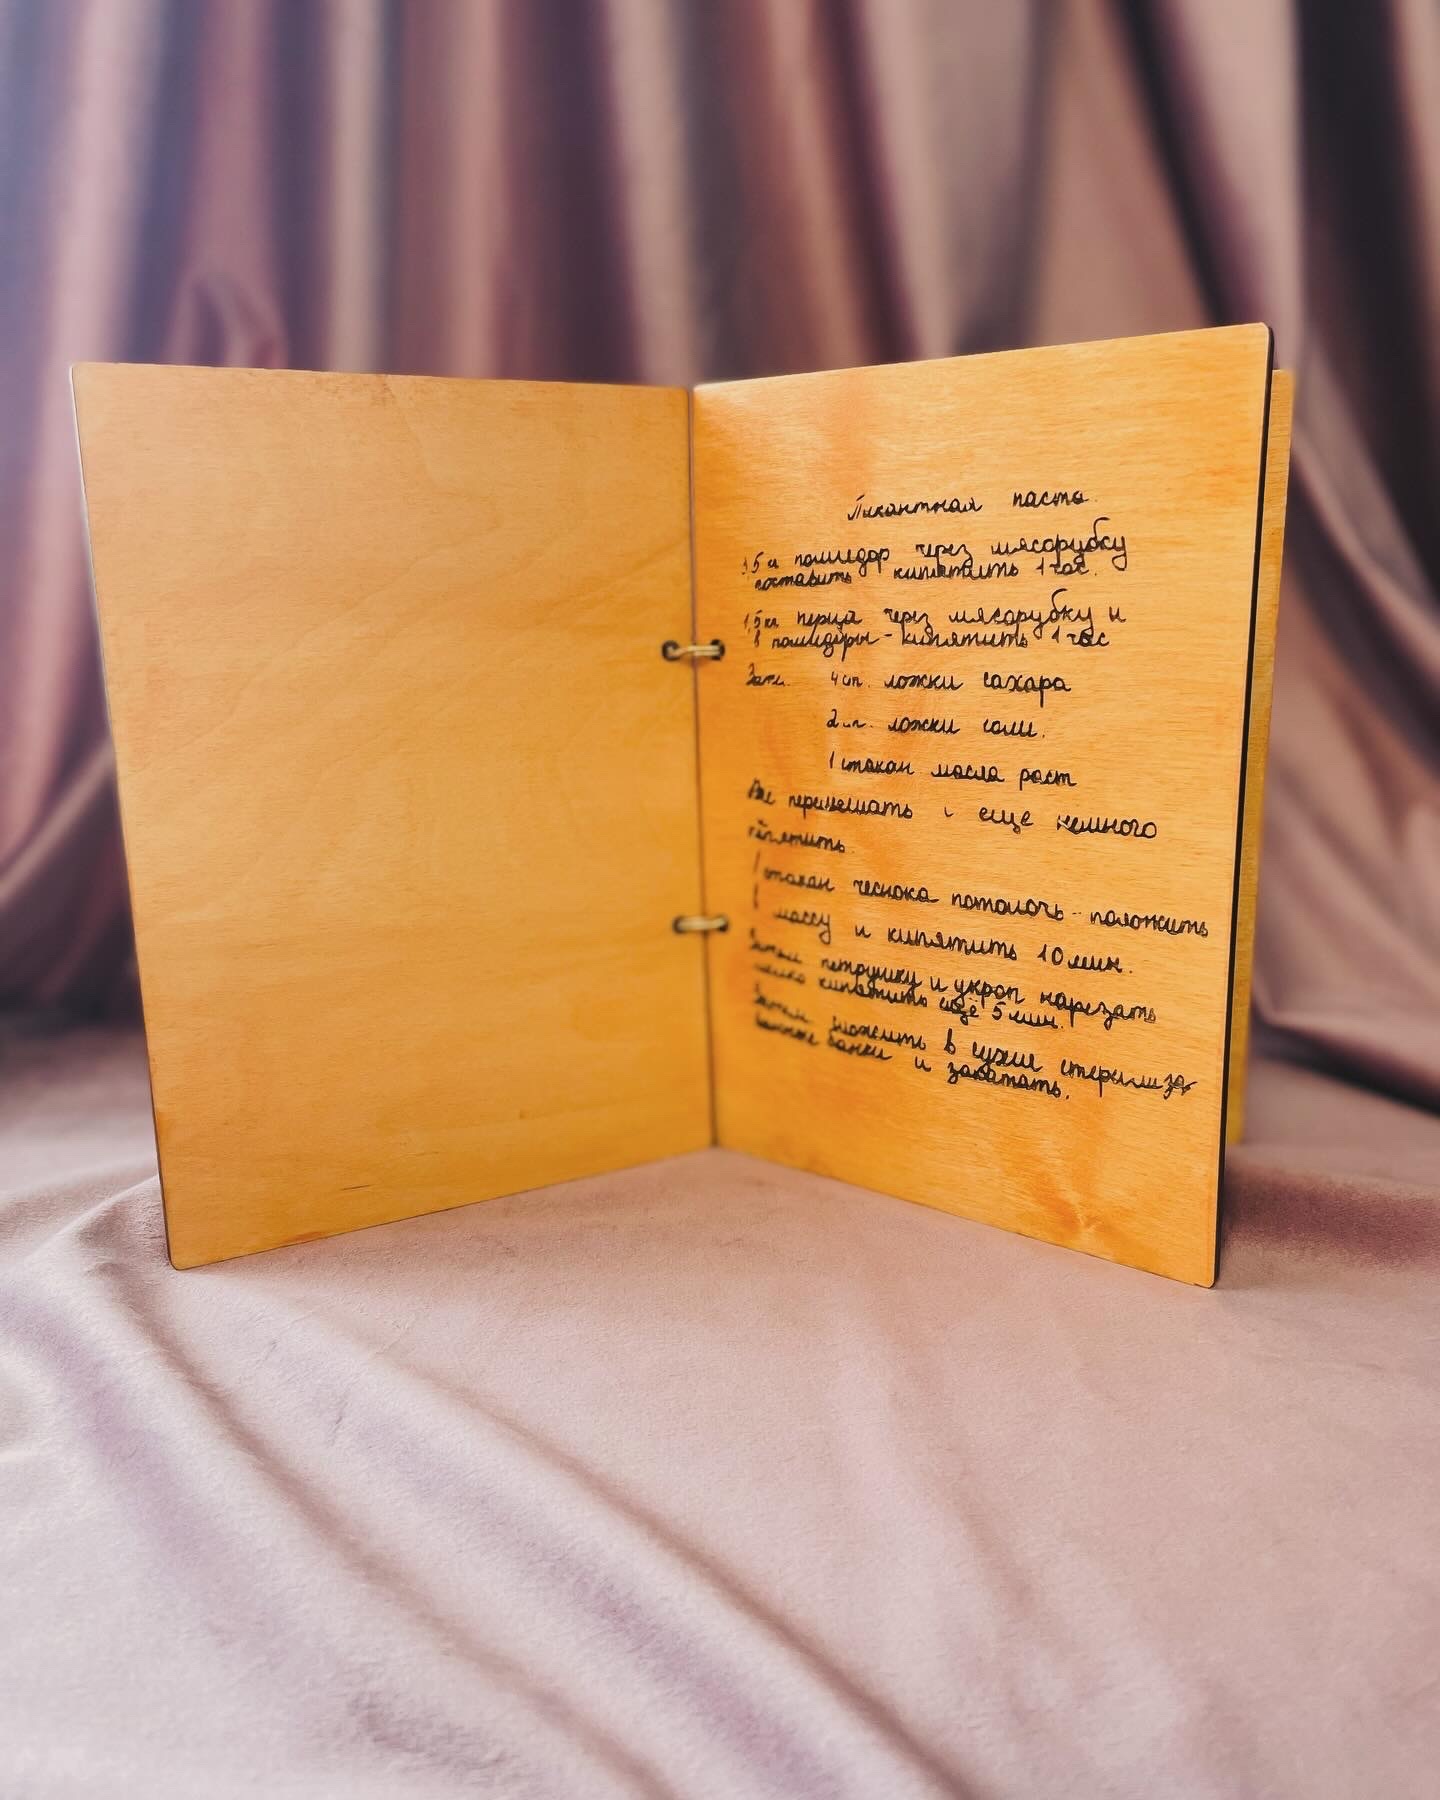 Пикантная паста.
3,5 кг помидор через мясорубку
поставить кипятить 1 час.
1,5 кг перца через мясорубку и
в помидоры - кипятить 1 час
Затем 4 ст. ложки сахара
2 ст. ложки соли.
1 стакан масла раст
Все перемешать и еще немного
кипятить.
1 стакан чеснока потолочь - положить
в массу и кипятить 10 мин.
Затем петрушку и укроп нарезать
мелко кипятить ещё 5 мин.
Затем сложить в сухие стерилизо-
ванные банки и закатать.